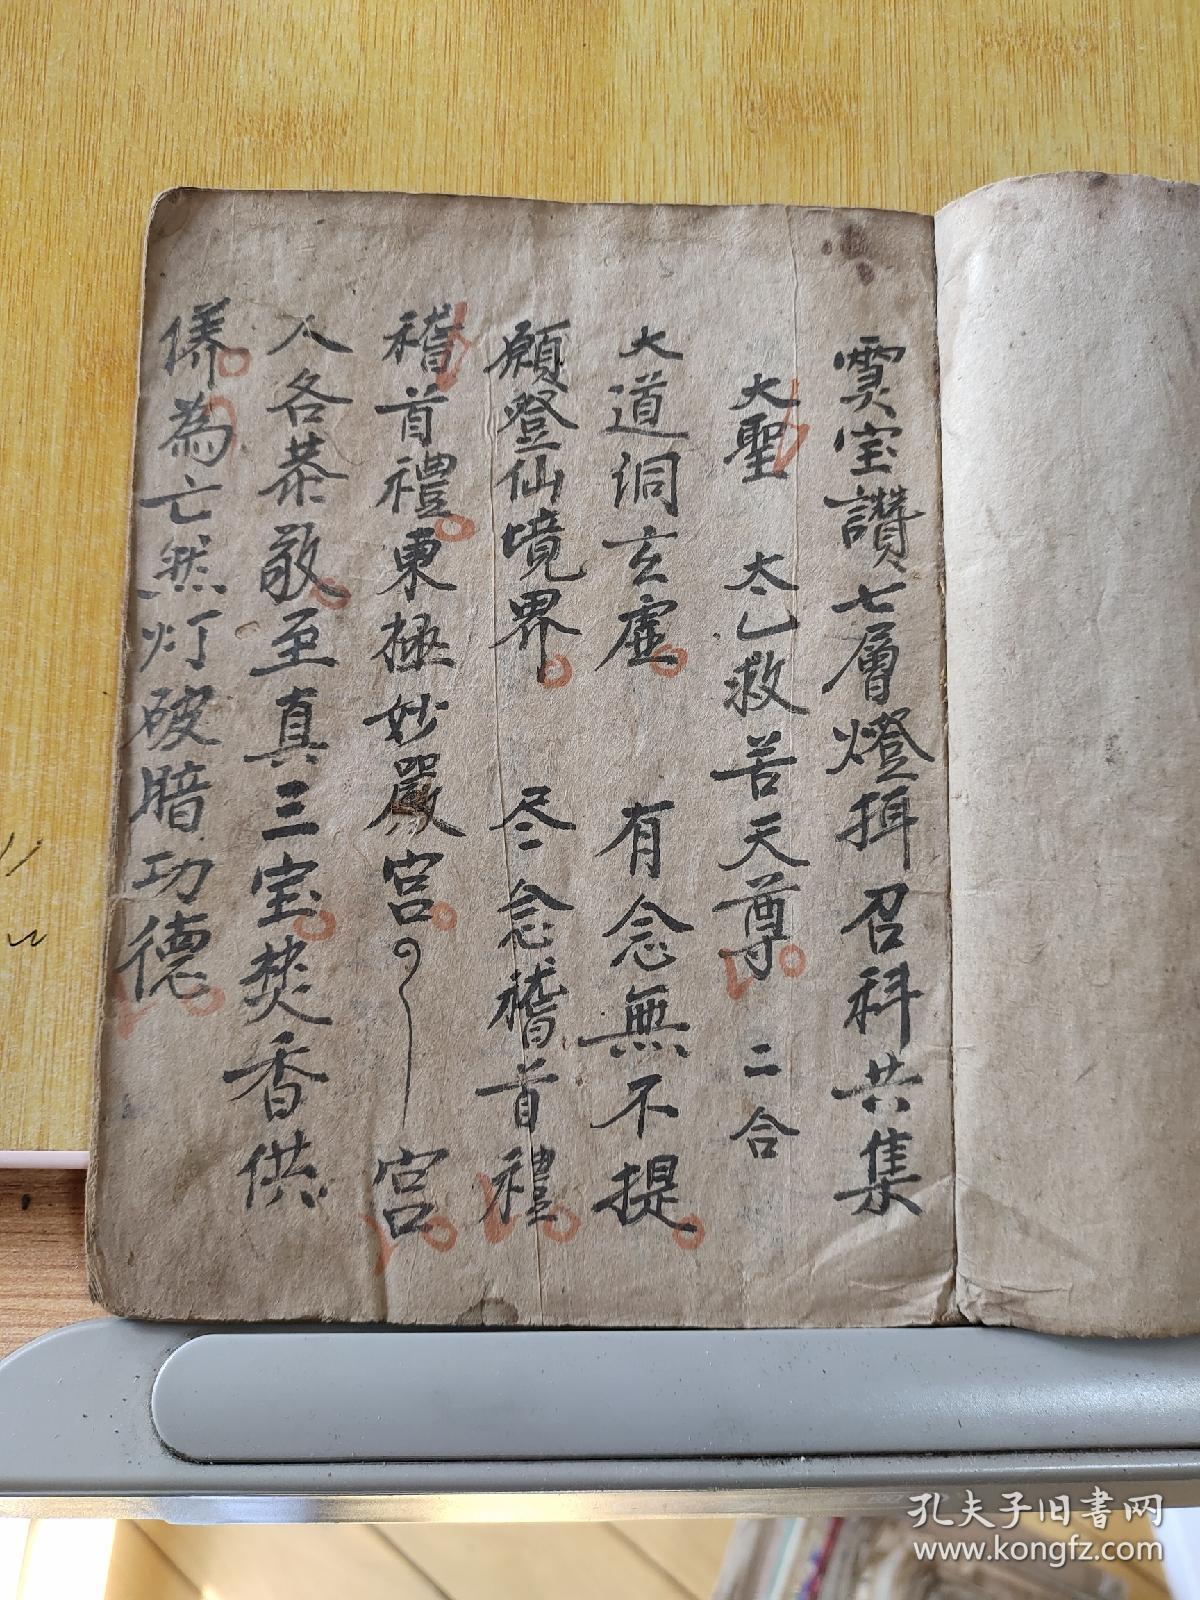 霛宝讚七層燈拜召科共集
大聖 太乙救苦天尊 二合
大道洞玄虛 有念無不提
願登仙境界 尽念稽首禮
稽首禮東極妙嚴宮 宮
人各恭敬至真三宝焚香供
俻為亡然灯破暗功德
孔夫子旧书网
www.kongfz.com